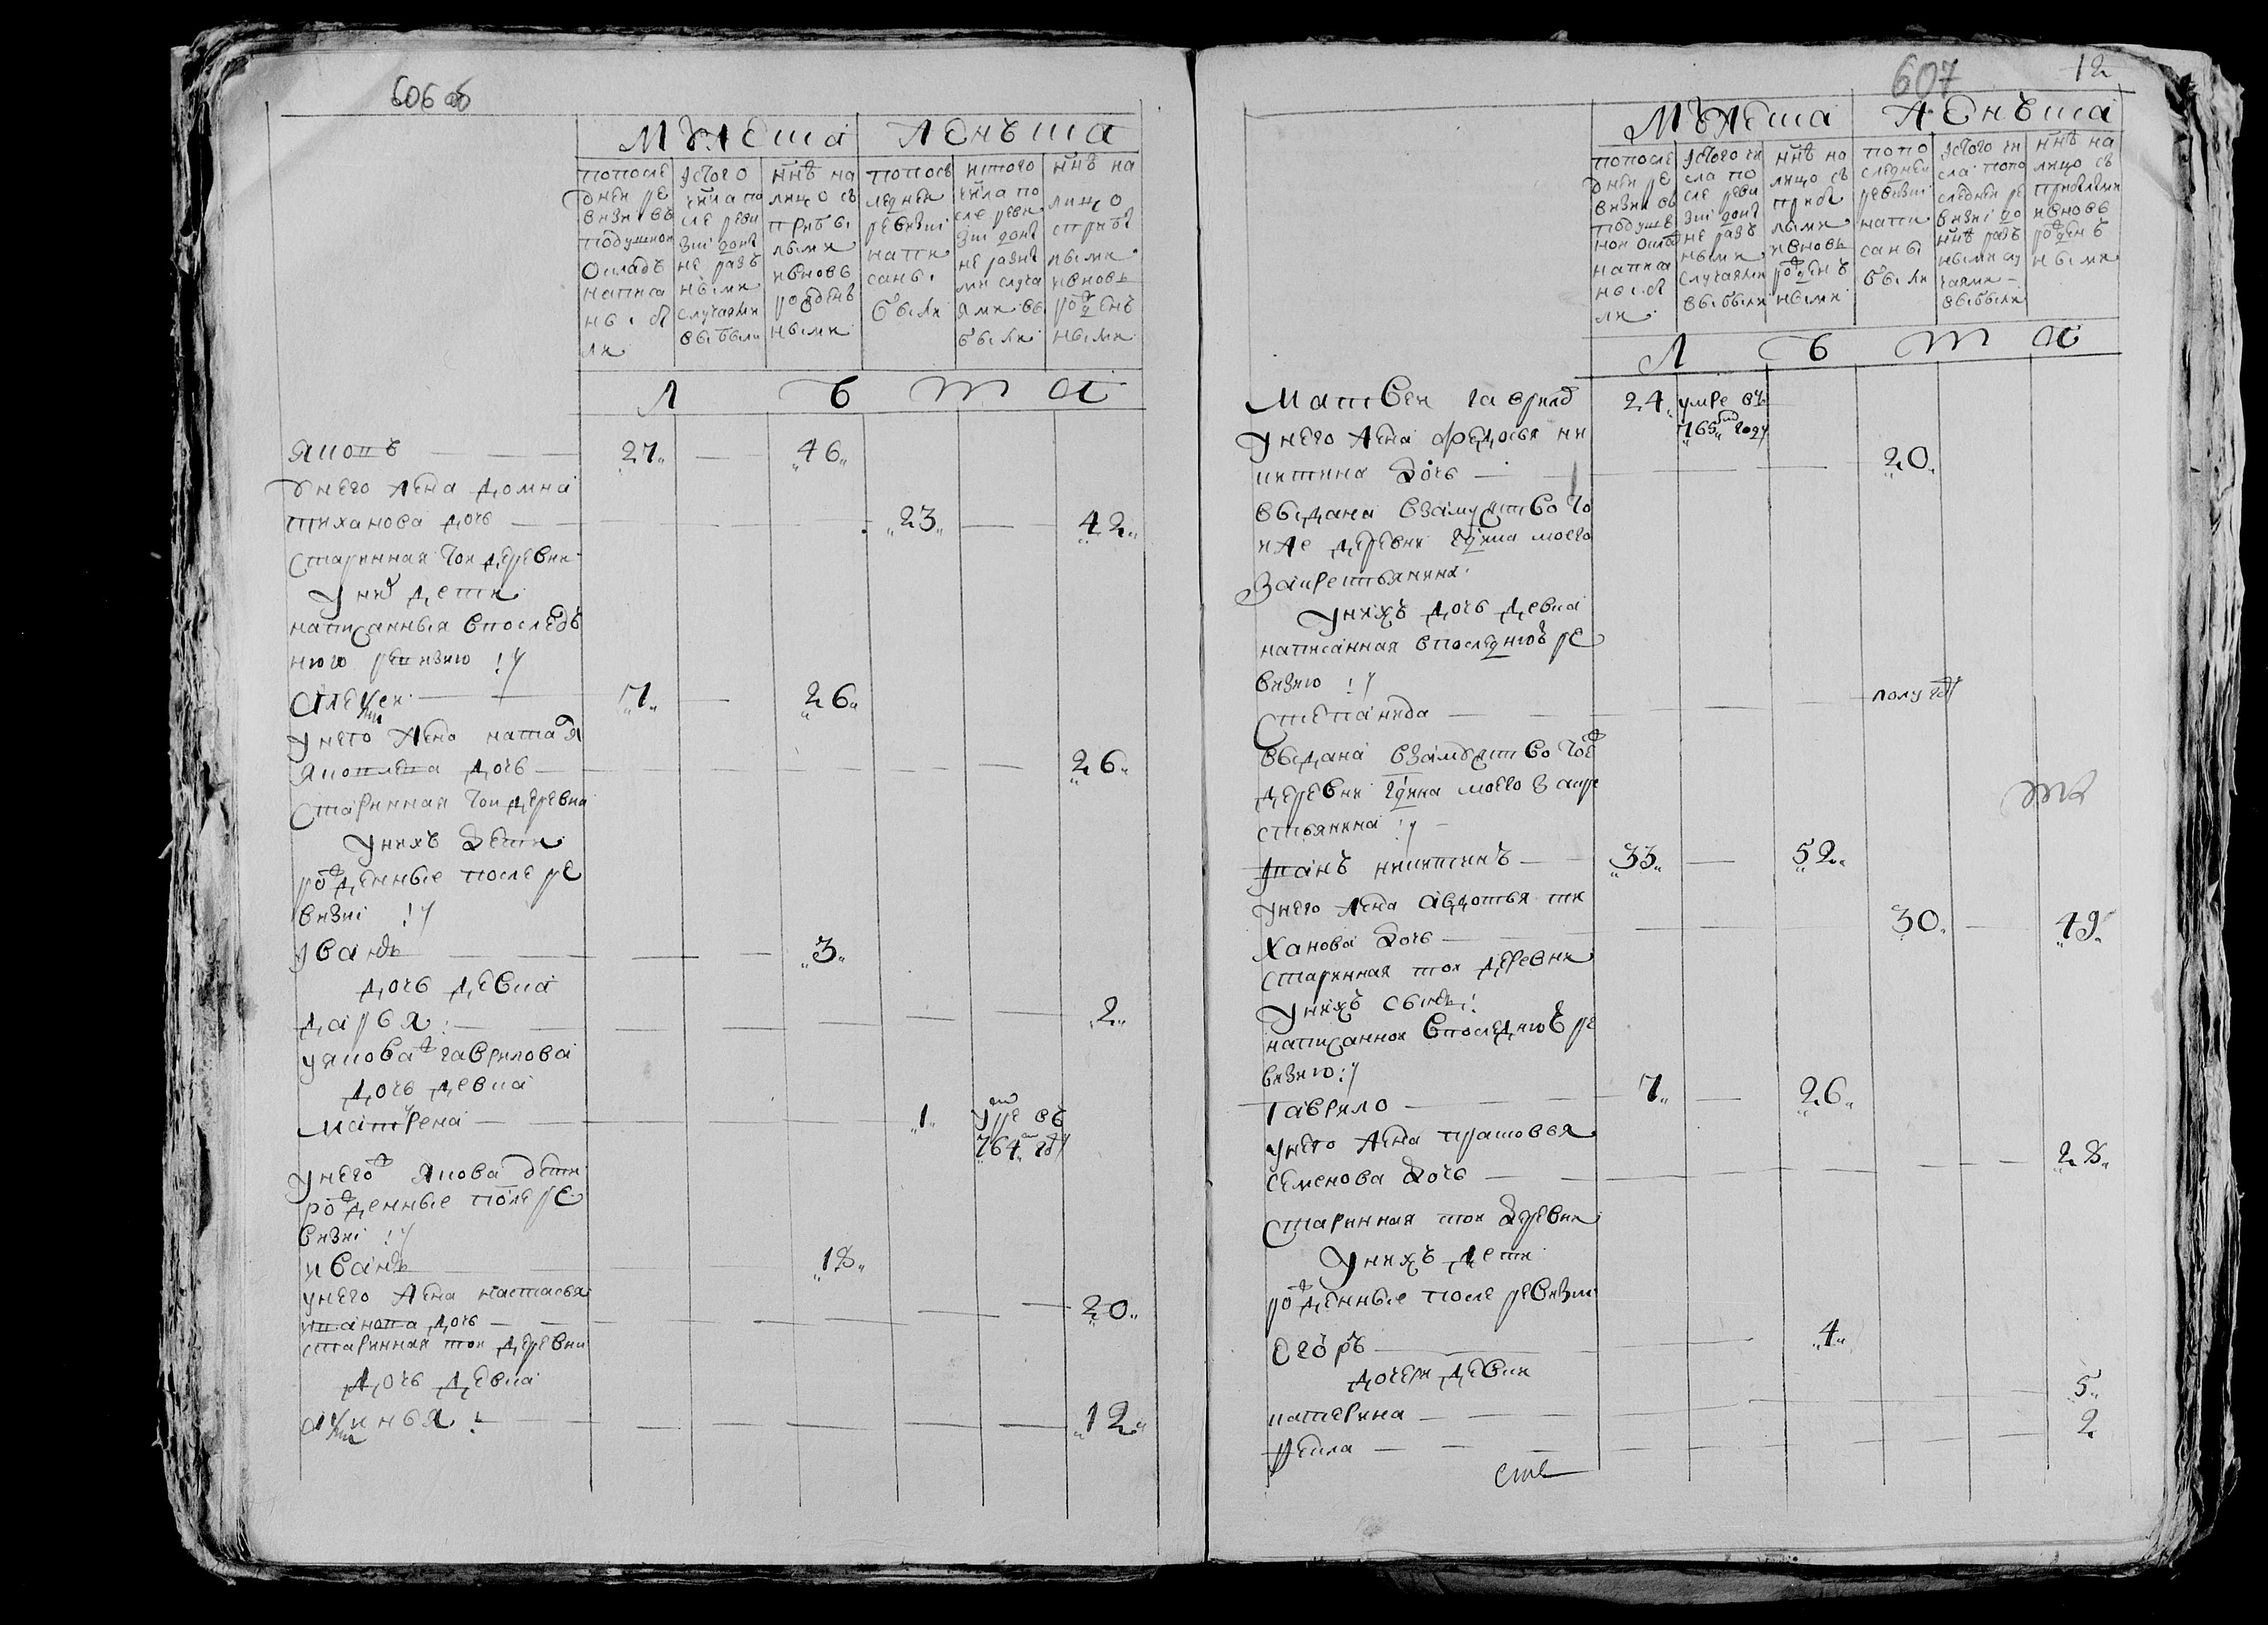 606 об
мужеска женска
попосле дней ревизиї вь подушной окладъ написаны были
ис того числа после ревизиї до нне разъными случаями выбыли
нне на лицо съ прибылыми и вновь рожденъными
по последней ревизиї написаны были
ис того числа после ревизиї до нне разными случаями выбыли
нне на лицо с прибылыми и вновь рожденъными
л ѣ т а
Яковъ 27 46
у него жена домна
тиханова дочь 23 42
старинная той деревни
у них дети
написанныя в последь
нюю ревизию
Алексеи 7 26
у него жена наталя
яковлева дочь 26
старинная той деревни
у нихъ дети
рожденные после ре
визиї
иванъ 3
дочь девка
дарья 2
у якова ж гаврилова
дочь девка
матрена 1 умре въ 764м году
у него ж якова дети
рожденные после ре
визиї
иванъ 18
у него жена настасья
иванова дочь 20
старинная той деревни
дочь девка
аксинья 12
607 12
мужеска женска
попосле дней ревизиї вь подушной окладъ написаны были
ис того числа после ревизиї до нне разъными случаями выбыли
нне на лицо съ прибылыми и вновь рожденъными
по последней ревизиї написаны были
ис того числа по последней ревизиї до нне разъными случаями выбыли
нне на лицо съ прибылыми и вновь рожденъными
л ѣ т а
Матвеи гаврилов 24 умре въ 765м году
у него жена федосья ни
китина дочь 20
выдана в замужство то
и же деревни гдина моего
за крестьянина
у нихъ дочь девка
написанная в последнюю ре
визию
Степанида полугоду
выдана в замужство тоеж
деревни гдина моего за кре
стьянина
Иванъ никитинъ 33 52
у него жена авдотья ти
ханова дочь 30 49
старинная той деревни
у нихъ сынъ
написанной в последнюю ре
визию
гаврило 7 26
у него жена прасковья
семенова дочь 28
старинная той деревни
у нихъ дети
рожденные после ревизиї
Егоръ 4
дочери девки
катерина 5
фекла 2